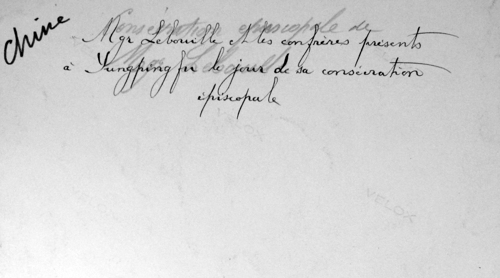 Chine
Consécration épiscopale de
Mgr Lebouille et les confrères présents
à Yungpingfu le jour de sa consécration
épiscopale
VELOX